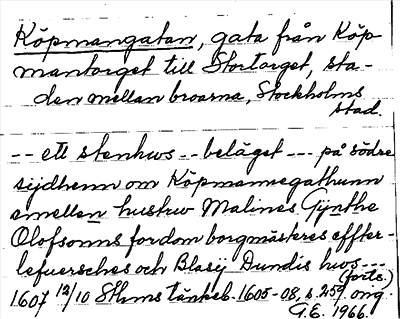 Köpmangatan, gata från Köp
mantorget till Stortorget, sta-
den mellan broarna, Stockholms
stad.
-- ett stenhws -- beläget --- på södre
sijdhenn om Köpmannegathunn
emellen hustrw Malines Gynthe
Olofsonns fordom borgmästres effter-
lefuersches och Blasij Dundis hws ---
(forts.)
1607 12/10 Sthms tänkeb. 1605-08, s. 259 orig.
G.E. 1966.